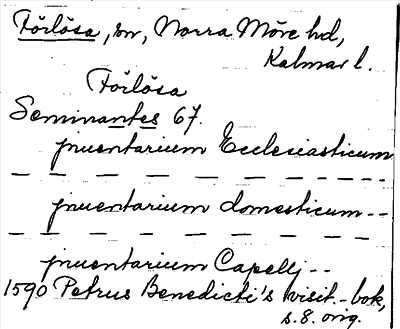 Förlösa, sn, Norra Möre hd,
Kalmar l.
Förlösa
Seminantes 67.
jnuentarium Ecclesiasticum
— — — — — — — — — — —
jnuentarium domesticum --
— — — — — — — — — —
jnuentarium Capellj --
1590 Petrus Benedicti's visit.-bok,
s. 8. orig.